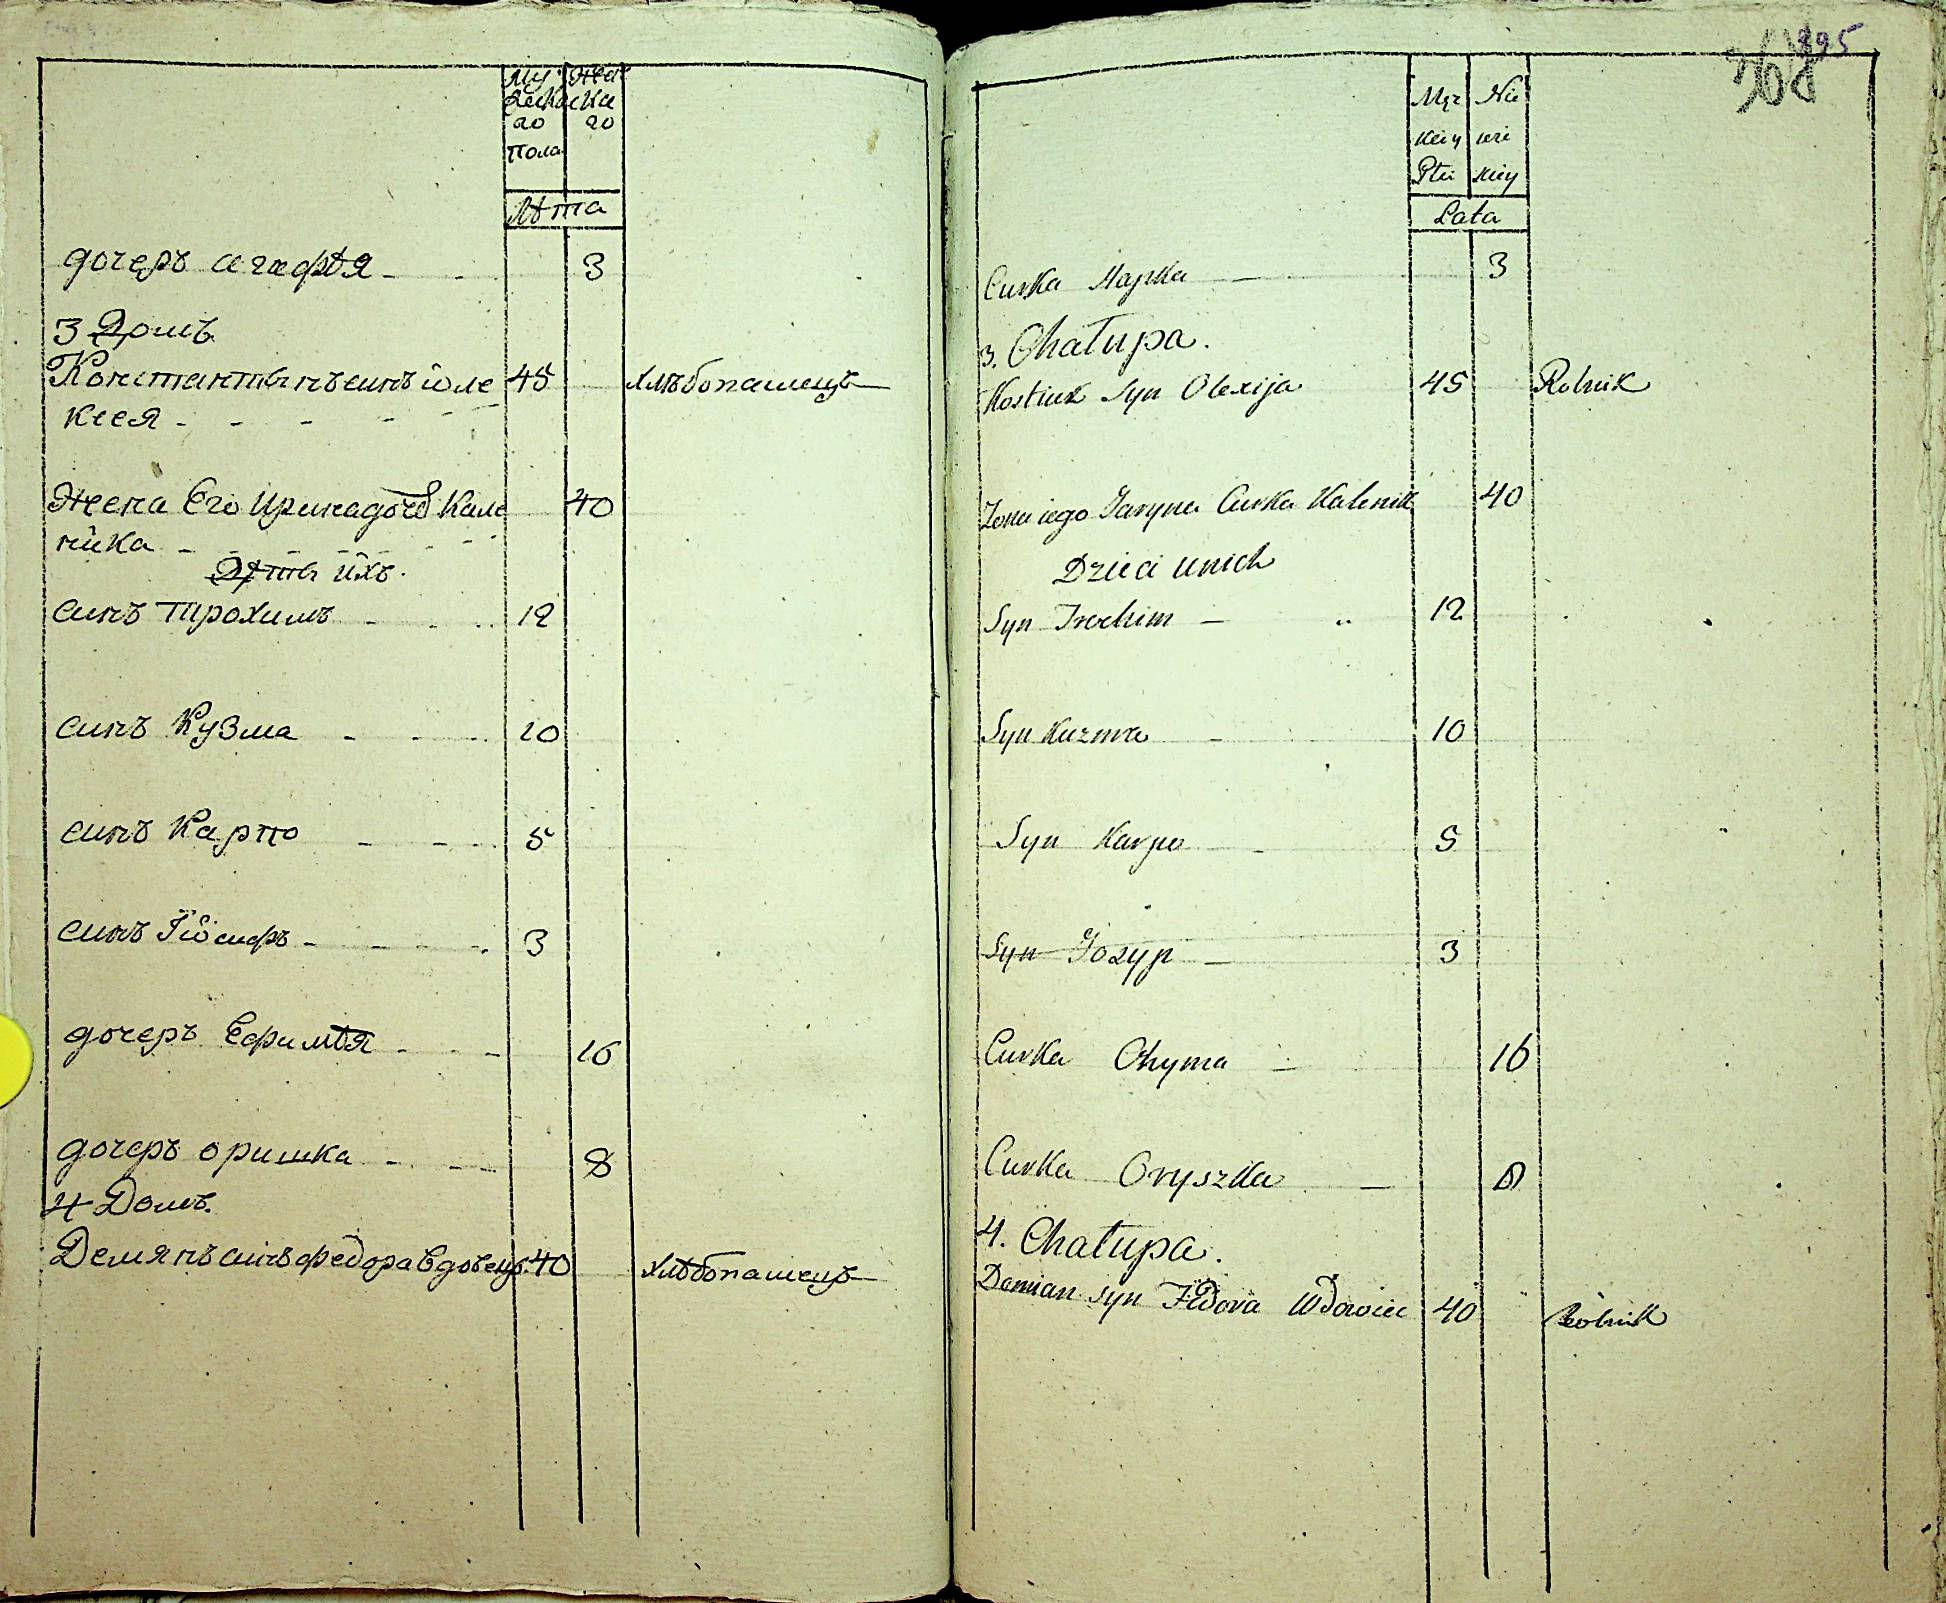 Му Жен
жеска ска
го го
пола
Лѣта
дочеръ агафѣя 3
3 Домъ
Константынъ синъ оле 45 хлѣбопашецъ
ксея
Жена Его Ирина дочъ Кале 40
ника
Дѣты ихъ.
синъ трохимъ 12
синъ Кузма 10
синъ Карпо 5
синъ Іосифъ 3
дочеръ Ефимѣя 16
дочеръ оришка 8
4 Домъ.
Демянъ синъ федора вдовецъ 40 хлѣбопашецъ
895
368
Męz Nie
kiey wie
Płci skiey
Lata
Curka Hapka 3
3. Chałupa.
Kostiuk syn Olexija 45 Rolnik
Zona iego Jaryna Curka Kalenik 40
Dzieci unich
Syn Trochim 12
Syn Kuzma 10
Syn Karpo 5
Syn Jozyp 3
Curka Chyma 16
Curka Oryszka 8
4. Chałupa.
Demian syn Fedora Wdowiec 40 Rolnik